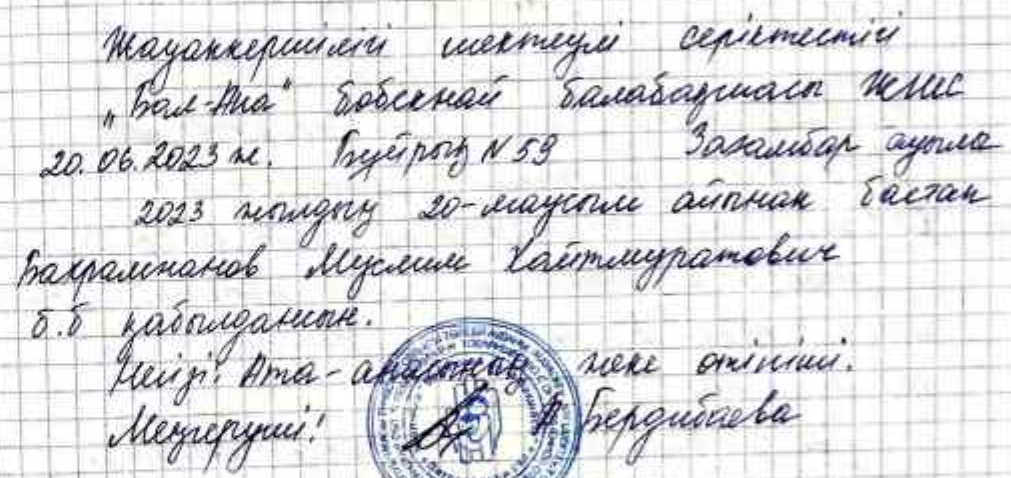 Жауапкершілігі шектеулі серіктестігі
„Бал-Ана" бөбекжай балабақшасы ЖШС
20.06.2023 ж. Бұйрық N 59 Зағамбар ауылы
2023 жылдың 20-маусым айынан бастап
Бахрамжанов Муслим Хайтмуратович
б.б қабылдансын.
Негізі: Ата-анасының жеке өтініші.
Меңгеруші: А Бердибаева